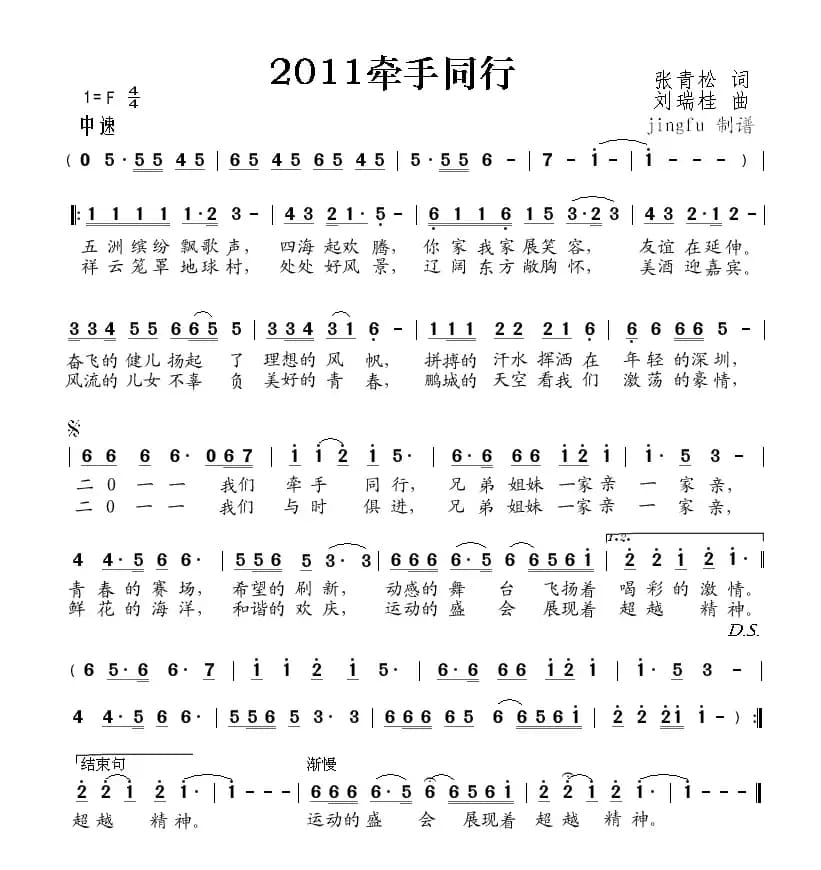 2011牵手同行
1=F 4/4
张青松 词
刘瑞桂 曲
中速
jingfu 制谱
( 0 5· 5 5 4 5 | 6 5 4 5 6 5 4 5 | 5· 5 5 6 - | 7 - i - | i - - - ) |
|: 1 1 1 1 1·2 3 - | 4 3 2 1· 5 - | 6 1 1 6 1 5 3·2 3 | 4 3 2·1 2 - |
五洲缤纷飘歌声， 四海起欢腾， 你家我家展笑容， 友谊在延伸。
祥云笼罩地球村， 处处好风景， 辽阔东方敞胸怀， 美酒迎嘉宾。
3 3 4 5 5 6 6 5 5 | 3 3 4 3 1 6 - | 1 1 1 2 2 2 1 6 | 6 6 6 6 5 5 - |
奋飞的健儿扬起了理想的风帆， 拼搏的汗水挥洒在年轻的深圳，
风流的儿女不辜负美好的青春， 鹏城的天空看我们激荡的豪情，
| 6 6 6 6· 0 6 7 | i i 2 i 5· | 6· 6 6 6 i 2 i | i· 5 3 - |
二0一一 我们牵手同行， 兄弟姐妹一家亲一家亲，
二0一一 我们与时俱进， 兄弟姐妹一家亲一家亲，
1.2.
4 4·5 6 6· | 5 5 6 5 3· 3 | 6 6 6 6·5 6 6 5 6 i | 2 2 i 2 i - ‖
青春的赛场， 希望的刷新， 动感的舞台飞扬着喝彩的激情。
鲜花的海洋， 和谐的欢庆， 运动的盛会展现着超越精神。
D.S.
( 6 5·6 6· 7 | i i 2 i 5· | 6·6 6 6 i 2 i | i· 5 3 - |
4 4·5 6 6· | 5 5 6 5 3· 3 | 6 6 6 6 5 6 6 5 6 i | 2 2 2 i i - ) :‖
结束句 渐慢
2 2 i 2 i· | i - - - | 6 6 6 6·5 6 6 5 6 i | 2 2 i 2 i | i - - - ‖
超越精神。 运动的盛会展现着超越精神。